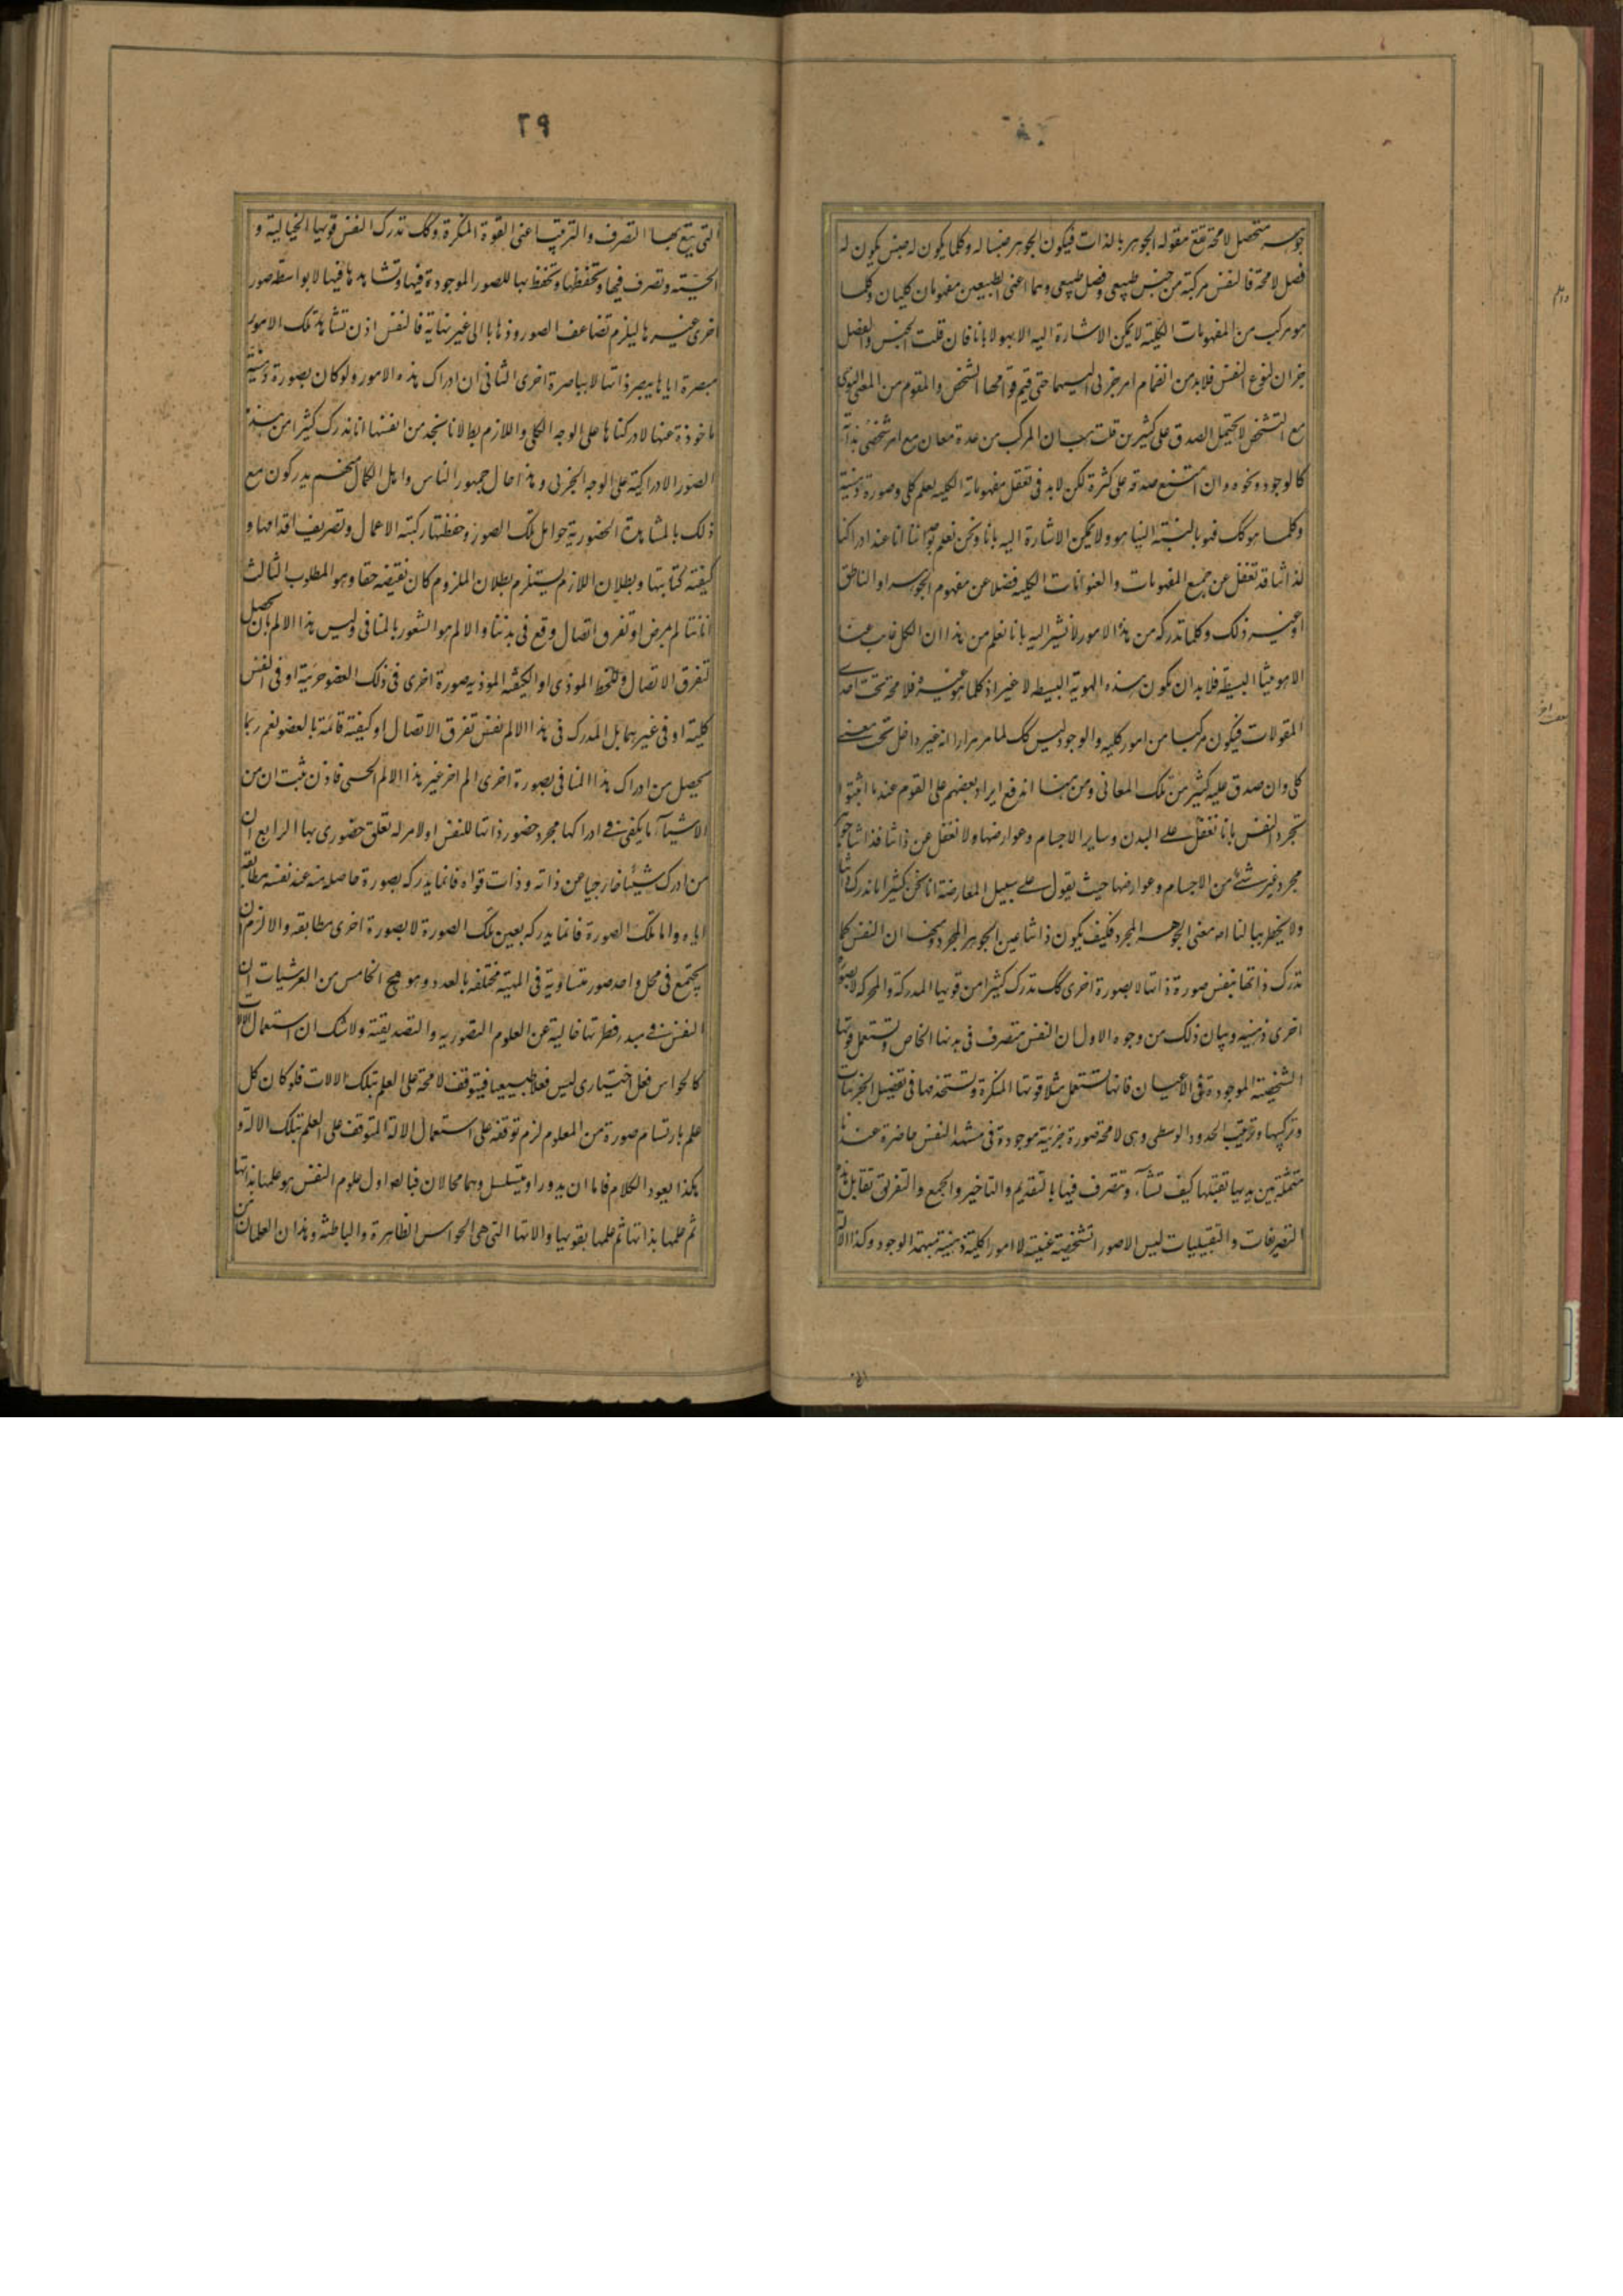 جوهر متحصل لامحة تقع مقولة الجوهر بالذات فيكون الجوهر جنسا له وكلما يكون له جنس يكون له
فصل لامحة فالنفس مركبة من جنس طبيعي وفصل طبيعي وهما اعني الطبيعين مفهومان كليان وكلما
هو مركب من المفهومات الكلية لا يمكن الاشارة اليه الا بهو لا بانا فان قلت الجنس والفصل
جزان لنوع النفس فلابد من انضمام امر جزئي اليهما حتى قوامها الشخص والمقوم من المعنى النوعي
مع التشخص لا يحتمل الصدق على كثيرين قلت هب ان المركب من عدة معان مع امر شخصي بذاته
كالوجود ونحوه وان امتنع صدقه على كثرة لكن لابد في تعقل مفهوماته الكلية لعلم كلي وصورة ذهنية
وكلما هو كك فهو بالنسبة الينا هو ولا يمكن الاشارة اليه بانا ونحن نعلم انا عند ادراكنا
لذاتنا قد نغفل عن جميع المفهومات والعنوانات الكلية فضلا عن مفهوم الجوهر او الناطق
او غير ذلك وكلما ندركه من هذا الامور لا نشير اليه بانا نعلم من هذا ان الكل غايب عنا
الا هويتنا البسيطة فلابد ان تكون هذه الهوية البسيطة لا غير اذ كلما هو غيره فلامحة تحت احدى
المقولات فيكون مركبا من امور كلية والوجود ليس كك لما مر مرارا انه غير داخل تحت معنى
كلي وان صدق عليه كثير من تلك المعاني ومن ههنا اندفع ايراد بعضهم على القوم عندما اثبتوا
تجرد النفس بانا نغفل على البدن وساير الاجسام وعوارضها ولا نغفل عن ذاتنا فذاتنا جوهر
مجرد غير شئ من الاجسام وعوارضها حيث يقول على سبيل المعارضة انا نحن كثيرا ما ندرك ذاتنا
ولا يخطر ببالنا معنى الجوهر المجرد فكيف يكون ذاتنا عين الجوهر المجرد ان النفس كما
تدرك ذاتها بنفس صورة ذاتها لا بصورة اخرى كك تدرك كثيرا من قويها المدركة والمحركة لا بصورة
اخرى ذهنية وبيان ذلك من وجوه الاول ان النفس متصرف في بدنها الخاص وتستعمل قوتها
الشخصية الموجودة في الاعيان فانها تستعمل مثلا قوتها المفكرة وتستخدمها في تفصيل الجزئيات
وتركيبها وترتيب الحدود الوسطى وهي لامحة صورة جزئية موجودة في مشهد النفس حاضرة عندها
متمثلة بين يديها تقبلها كيف تشآء وتتصرف فيها بالتقديم والتاخير والجمع والتفريق تقابل هذه
التصرفات والتقبليات ليس الا صورا تشخصية عينية لا امورا كلية ذهنية مبهمة الوجود وكذا الالة
٢٩
التي يقع بها التصرف والترتيب اعني القوة المفكرة وكك تدرك النفس قويها الخيالية و
الحسية وتصرف فيها وتحفظها وتحفظ بها للصور الموجودة فيها وتشاهدها فيها لا بواسطة صور
اخرى غيرها ليلزم تضاعف الصور وذهابا الى غير نهاية فالنفس اذن تشاهد تلك الامور
مبصرة اياها ببصر ذاتها لا بباصرة اخرى الثاني ان ادراك هذه الامور ولو كان بصورة ذهنية
ماخوذة عنها لادركناها على الوجه الكلي واللازم بط لانا نجد من انفسنا انا ندرك كثيرا من هذه
الصور الادراكية على الوجه الجزئي وهذا حال جمهور الناس واهل الكمال منهم يدركون مع
ذلك بالمشاهدة الحضورية حوامل تلك الصور وحفظتها ركبة الاعمال وتصريف اقدامها و
كيفية كتابتها وبطلان اللازم يستلزم بطلان الملزوم كان نقيضه حقا وهو المطلوب الثالث
انا نتالم بمرض او تفرق اتصال وقع في بدننا والالم هو الشعور بالمنافي وليس هذا الالم بان يحصل
لتفرق الاتصال وللخلط الموذي او الكيفية الموذية صورة اخرى في ذلك العضو جزئية او في النفس
كلية او في غيرهما بل المدرك في هذا الالم نفس تفرق الاتصال او كيفية قائمة بالعضو نعم ربما
يحصل من ادراك هذا المنافي بصورة اخرى الم اخر غير هذا الالم الحسي فاذن ثبت ان من
الاشيآء ما يكفي في ادراكها مجرد حضور ذاتها للنفس او لامر له تعلق حضوري بها الرابع ان
من ادرك شيئا خارجيا عن ذاته وذات قواه فانما يدركه بصورة حاصلة منه عند نفسه مطابقة
اياه واما تلك الصورة فانما يدركه بعين تلك الصورة لا بصورة اخرى مطابقة والا لزم ان
يجتمع في محل واحد صور متساوية في المهية مختلفة بالعدد وهو مح الخامس من العرشيات ان
النفس في مبدء فطرتها خالية عن العلوم التصورية والتصديقية ولاشك ان استعمال الالات
كالحواس فعل اختياري ليس فعلا طبيعيا فيتوقف لامحة على العلم بتلك الالات فلو كان كل
علم بارتسام صورة من المعلوم لزم توقفه على استعمال الالة المتوقف على العلم بتلك الالة و
هكذا يعود الكلام فاما ان يدور او يتسلسل وهما محالان فبالضرورة اول علوم النفس هو علمها بذاتها
ثم علمها بذاتها ثم علمها بقويها والاتها التي هي الحواس الظاهرة والباطنة وهذان العلمان من